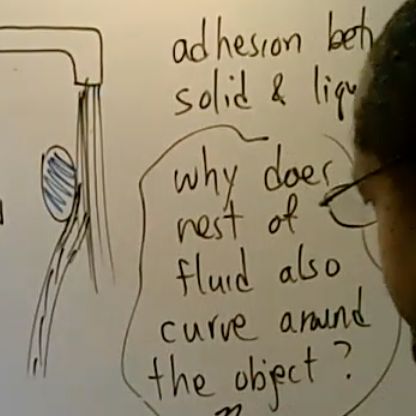 adhesion
solid &
why does
rest of
fluid also
curve around
the object?